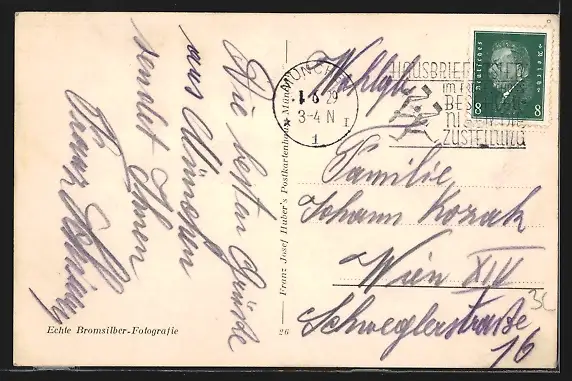 Die besten Grüße
aus München
sendet Ihnen
Franz
Echte Bromsilber-Fotografie
26
Franz Josef Huber's Postkartenhaus, München
MÜNCHEN
1 6 29
3-4 N
1
I
HAUSBRIEFKÄSTEN
IM
BESCHLEU-
NIGEN DIE
ZUSTELLUNG
Deutsches Reich
8 8
Wohlgb.
Familie
Johann Kozak
Wien XIV
Schweglerstraße
16